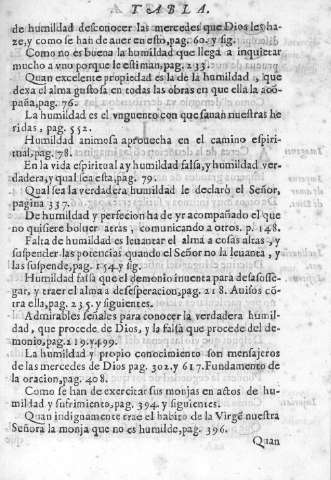 TABLA.
de humildad desconocer las mercedes que Dios les ha-
ze, y como se han de auer en esto, pag. 60. y sig.
Como no es buena la humildad que llega a inquietar
mucho a vno porque le estiman, pag. 233.
Quan excelente propiedad es la de la humildad, que
dexa el alma gustosa en todas las obras en que ella la acõ-
paña, pag. 76.
La humildad es el vnguento con que sanan nuestras he
ridas, pag. 552.
Humildad animosa aprouecha en el camino espiri-
tual, pag. 78.
En la vida espiritual ay humildad falsa, y humildad ver-
dadera, y qual sea esta, pag. 79.
Qual sea la verdadera humildad le declarò el Señor,
pagina 337.
De humildad y perfecion ha de yr acompañado el que
no quisiere boluer atras, comunicando a otros. p. 148.
Falta de humildad es leuantar el alma a cosas altas, y
suspender las potencias quando el Señor no la leuanta, y
las suspende, pag. 154. y sig.
Humildad falsa que el demonio inuenta para desasosse-
gar, y traer el alma a desesperacion, pag. 218. Auisos cõ
tra ella, pag. 235. y siguientes.
Admirables señales para conocer la verdadera humil-
dad, que procede de Dios, y la falsa que procede del de-
monio, pag. 219. y 499.
La humildad y propio conocimiento son mensajeros
de las mercedes de Dios pag. 302. y 617. Fundamento de
la oracion, pag. 408.
Como se han de exercitar sus monjas en actos de hu-
mildad y sufrimiento, pag. 394. y siguientes.
Quan indignamente trae el habito de la Virgẽ nuestra
Señora la monja que no es humilde, pag. 396.
Quan